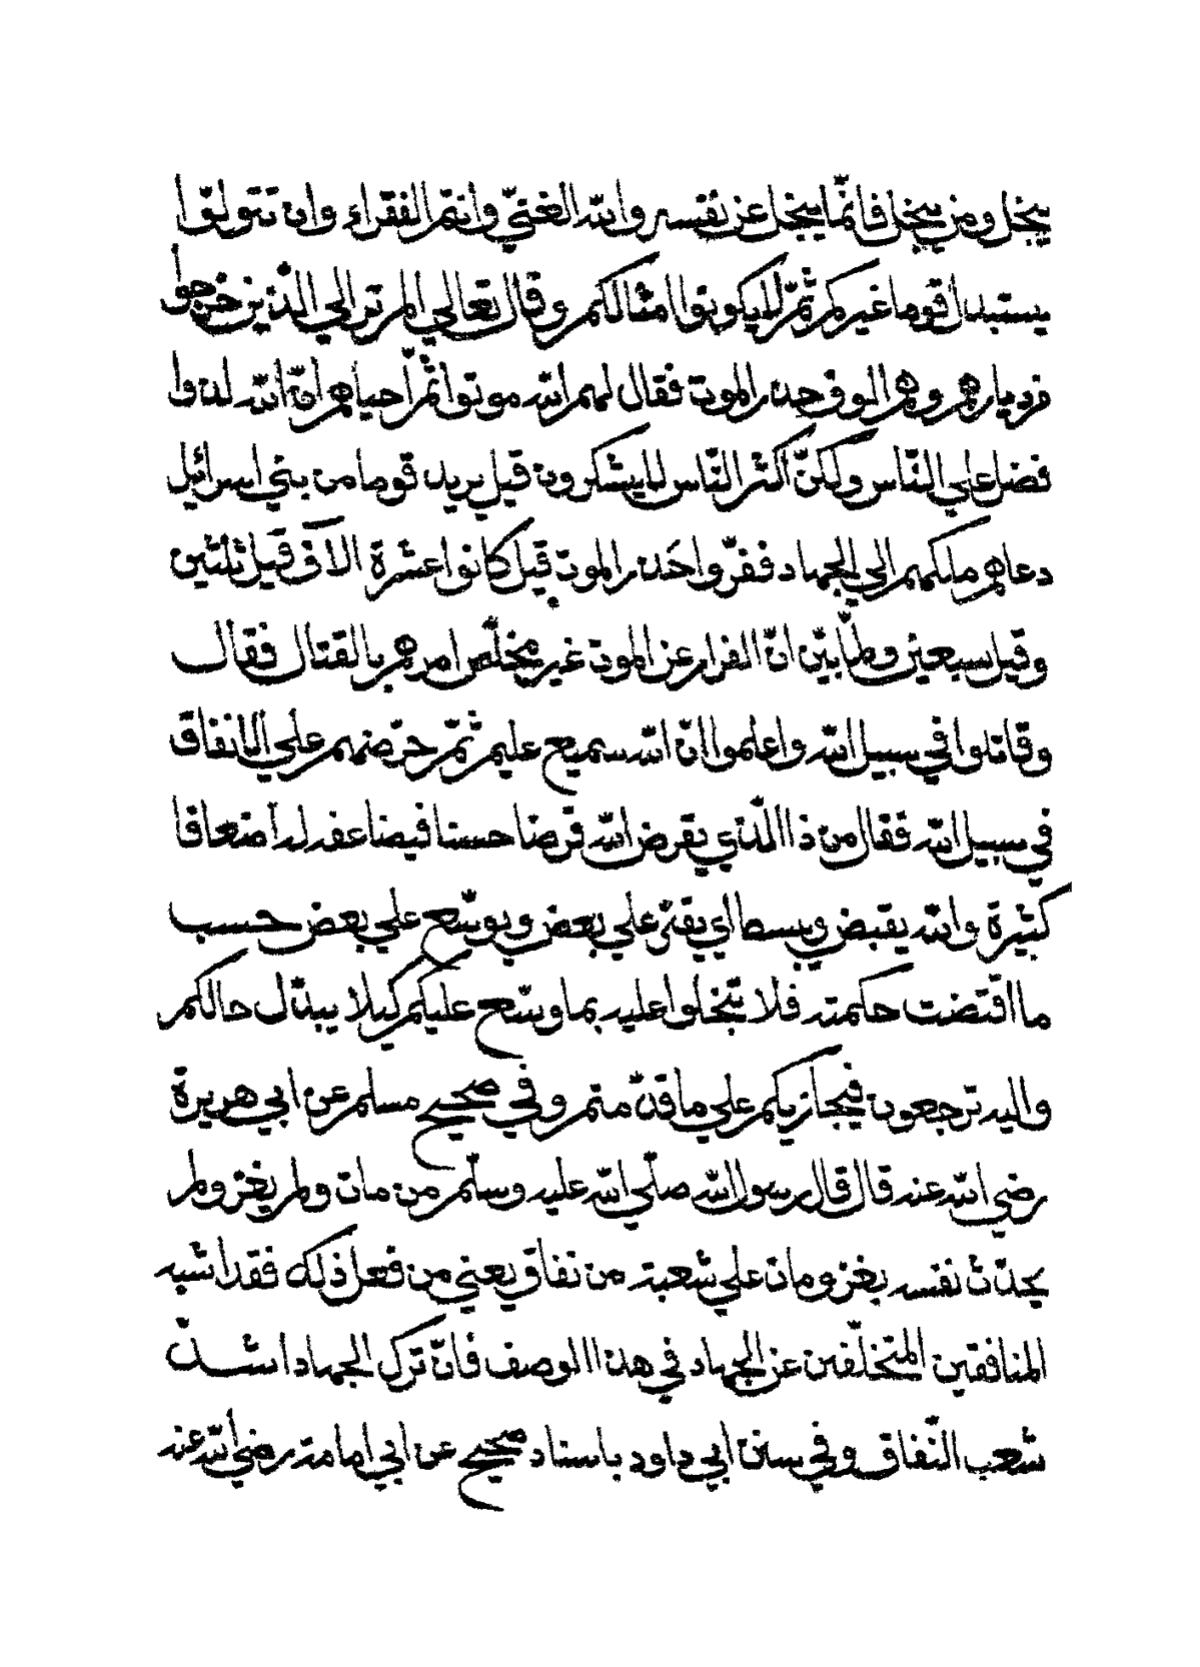 يبخل ومن يبخل فانّما يبخل عن نفسه والله الغنيّ وانتم الفقراء وان تتولّوا
يستبدل قوما غيركم ثمّ لا يكونوا امثالكم وقال تعالي الم تر الي الذين خرجوا
من ديارهم وهم الوف حذر الموت فقال لهم الله موتوا ثمّ أحياهم انّ الله لذوا
فضل علي النّاس ولكنّ أكثر النّاس لا يشكرون قيل يريد قوما من بني اسرائيل
دعاهم ملكهم الي الجهاد ففرّوا حَذر الموت قيل كانوا عشرة الآف قيل ثلثين
وقيل سبعين ولمّا بيّن انّ الفرار عن الموت غير مخلّص امرهم بالقتال فقال
وقاتلوا في سبيل الله واعلموا انّ الله سميع عليم ثمّ حرّضهم علي الانفاق
في سبيل الله فقال من ذا الّذي يقرض الله قرضا حسنا فيضاعفه له أضعافا
كثيرة والله يقبض ويبسط اي يقتر علي بعض ويوسّع علي بعض حسب
ما اقتضت حكمته فلا تبخلوا عليه بما وسّع عليكم كيلا يبدّل حالكم
واليه ترجعون فيجازيكم علي ما قدّمتم وفي صحيح مسلم عن ابي هريرة
رضي الله عنه قال قال رسول الله صلّي الله عليه وسلّم من مات ولم يغز ولم
يحدّث نفسه بغز ومات علي شعبة من نفاق يعني من فعل ذلك فقد اشبه
المنافقين المتخلّفين عن الجهاد في هذا الوصف فانّ ترك الجهاد اشدّ
شعب النّفاق وفي سنن ابي داود باسناد صحيح عن ابي امامة رضي الله عنه